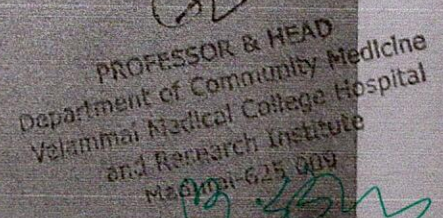 PROFESSOR & HEAD
Department of Community Medicine
Velammai Medical College Hospital
and Research Institute
Madurai-625 009